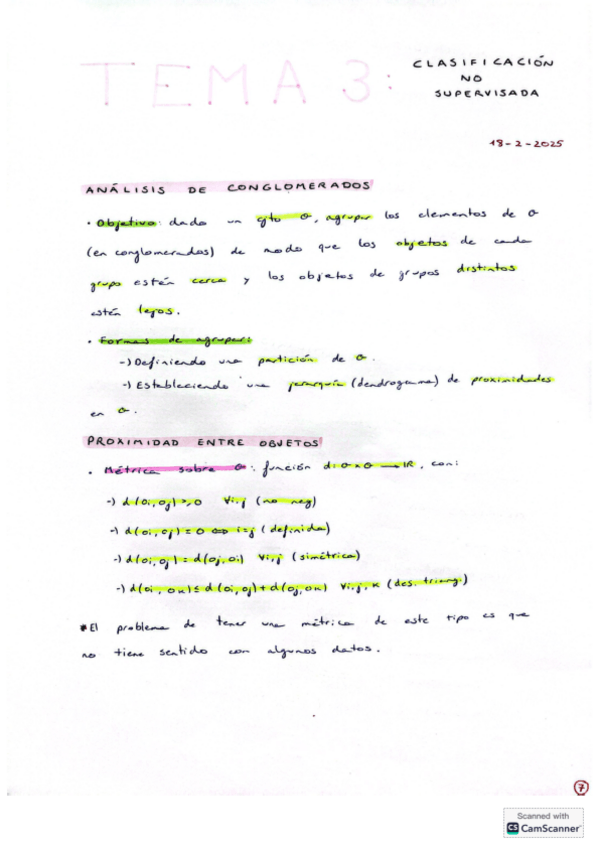 TEMA 3:
CLASIFICACIÓN
NO
SUPERVISADA
18-2-2025
ANÁLISIS DE CONGLOMERADOS
· Objetivo: dado un cjto O, agrupar los elementos de O
(en conglomerados) de modo que los objetos de cada
grupo estén cerca y los objetos de grupos distintos
estén lejos.
· Formas de agrupar:
-) Definiendo una partición de O.
-) Estableciendo una jerarquía (dendrograma) de proximidades
en O.
PROXIMIDAD ENTRE OBJETOS
· Métrica sobre O: función d: O x O → IR, con:
-) d(oi, oj) ≥ 0 ∀i,j (no neg)
-) d(oi, oj) = 0 ⇔ i=j (definida)
-) d(oi, oj) = d(oj, oi) ∀i,j (simétrica)
-) d(oi, ok) ≤ d(oi, oj) + d(oj, ok) ∀i,j,k (des. triang.)
* El problema de tener una métrica de este tipo es que
no tiene sentido con algunos datos.
7
Scanned with
CS CamScanner